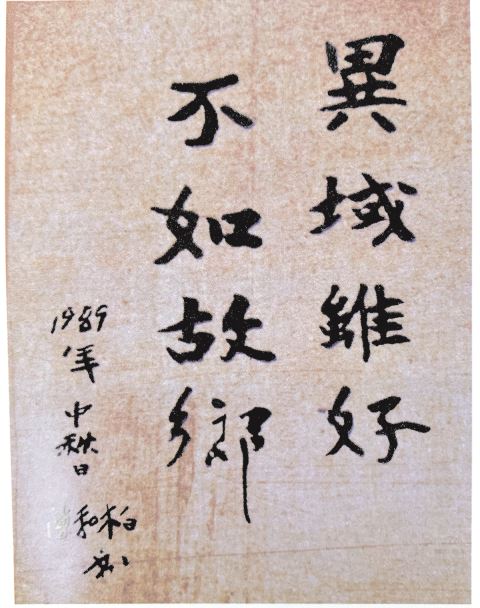 異域雖好
不如故鄉
1989年中秋日
和柏